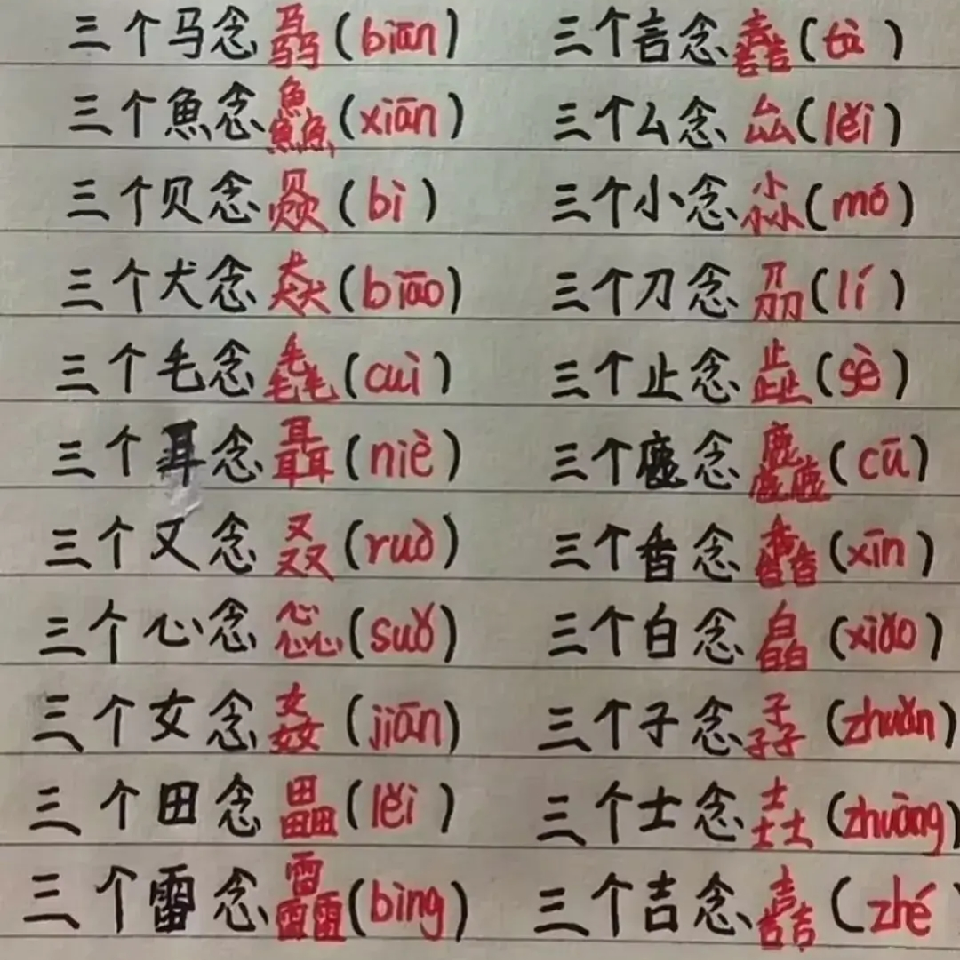 三个马念骉(biān) 三个言念譶(tà)
三个魚念鱻(xiān) 三个么念厽(lěi)
三个贝念赑(bì) 三个小念尛(mó)
三个犬念猋(biāo) 三个刀念刕(lí)
三个毛念毳(cuì) 三个止念歮(sè)
三个耳念聶(niè) 三个鹿念麤(cū)
三个又念叒(ruò) 三个香念馫(xīn)
三个心念惢(suǒ) 三个白念皛(xiǎo)
三个女念姦(jiān) 三个子念孨(zhuǎn)
三个田念畾(lěi) 三个士念壵(zhuàng)
三个雷念靐(bìng) 三个吉念嚞(zhé